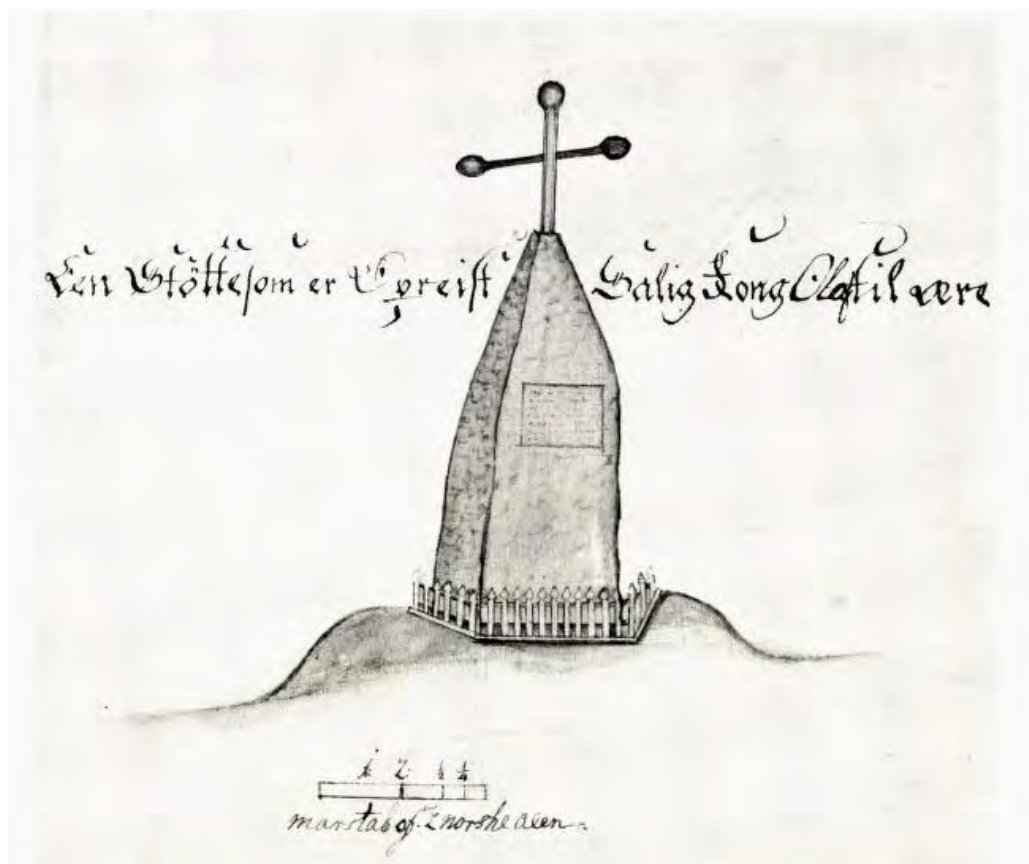 Een Støttesom er Opreist Salig Kong Olaf til ære
1 2 ½ ¼
marstab af 2 norske alen